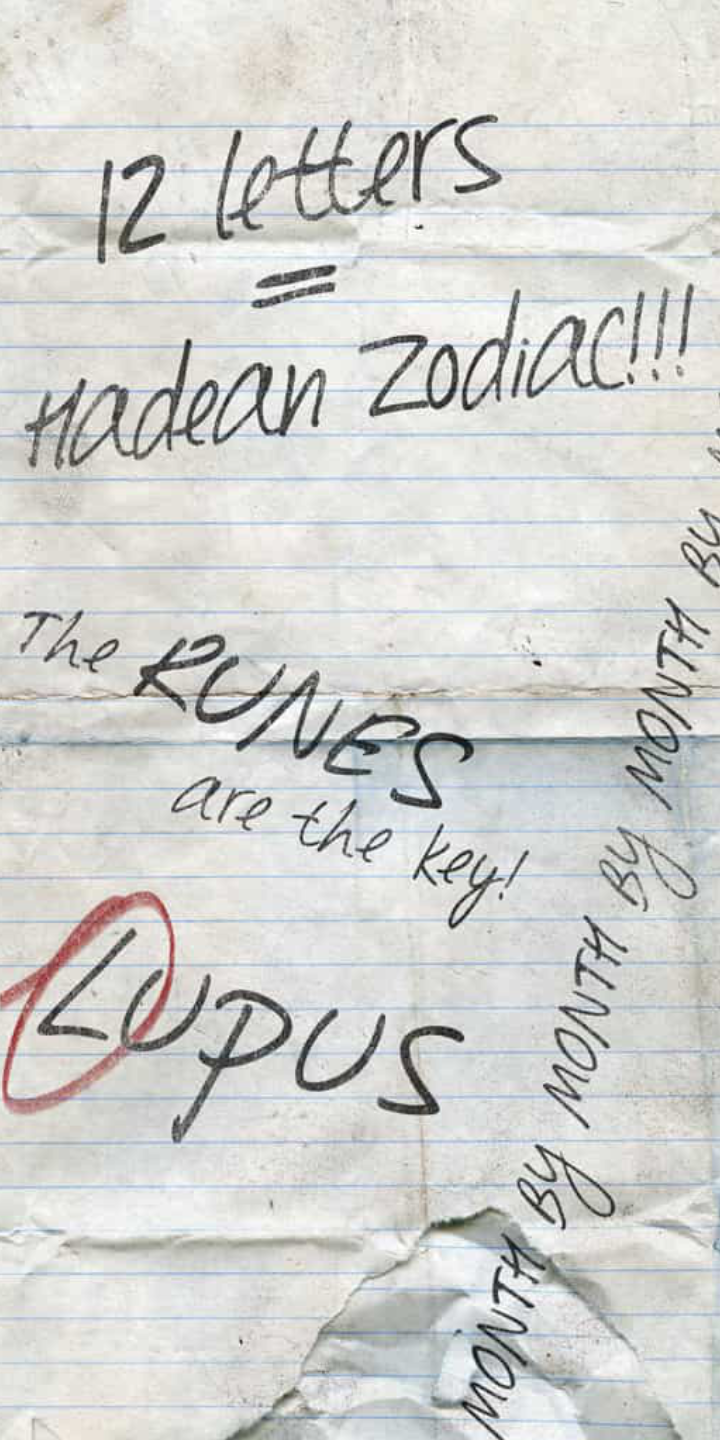 12 letters
=
Hadean Zodiac!!!
The RUNES
are the key!
LUPUS
MONTH BY MONTH BY MONTH BY